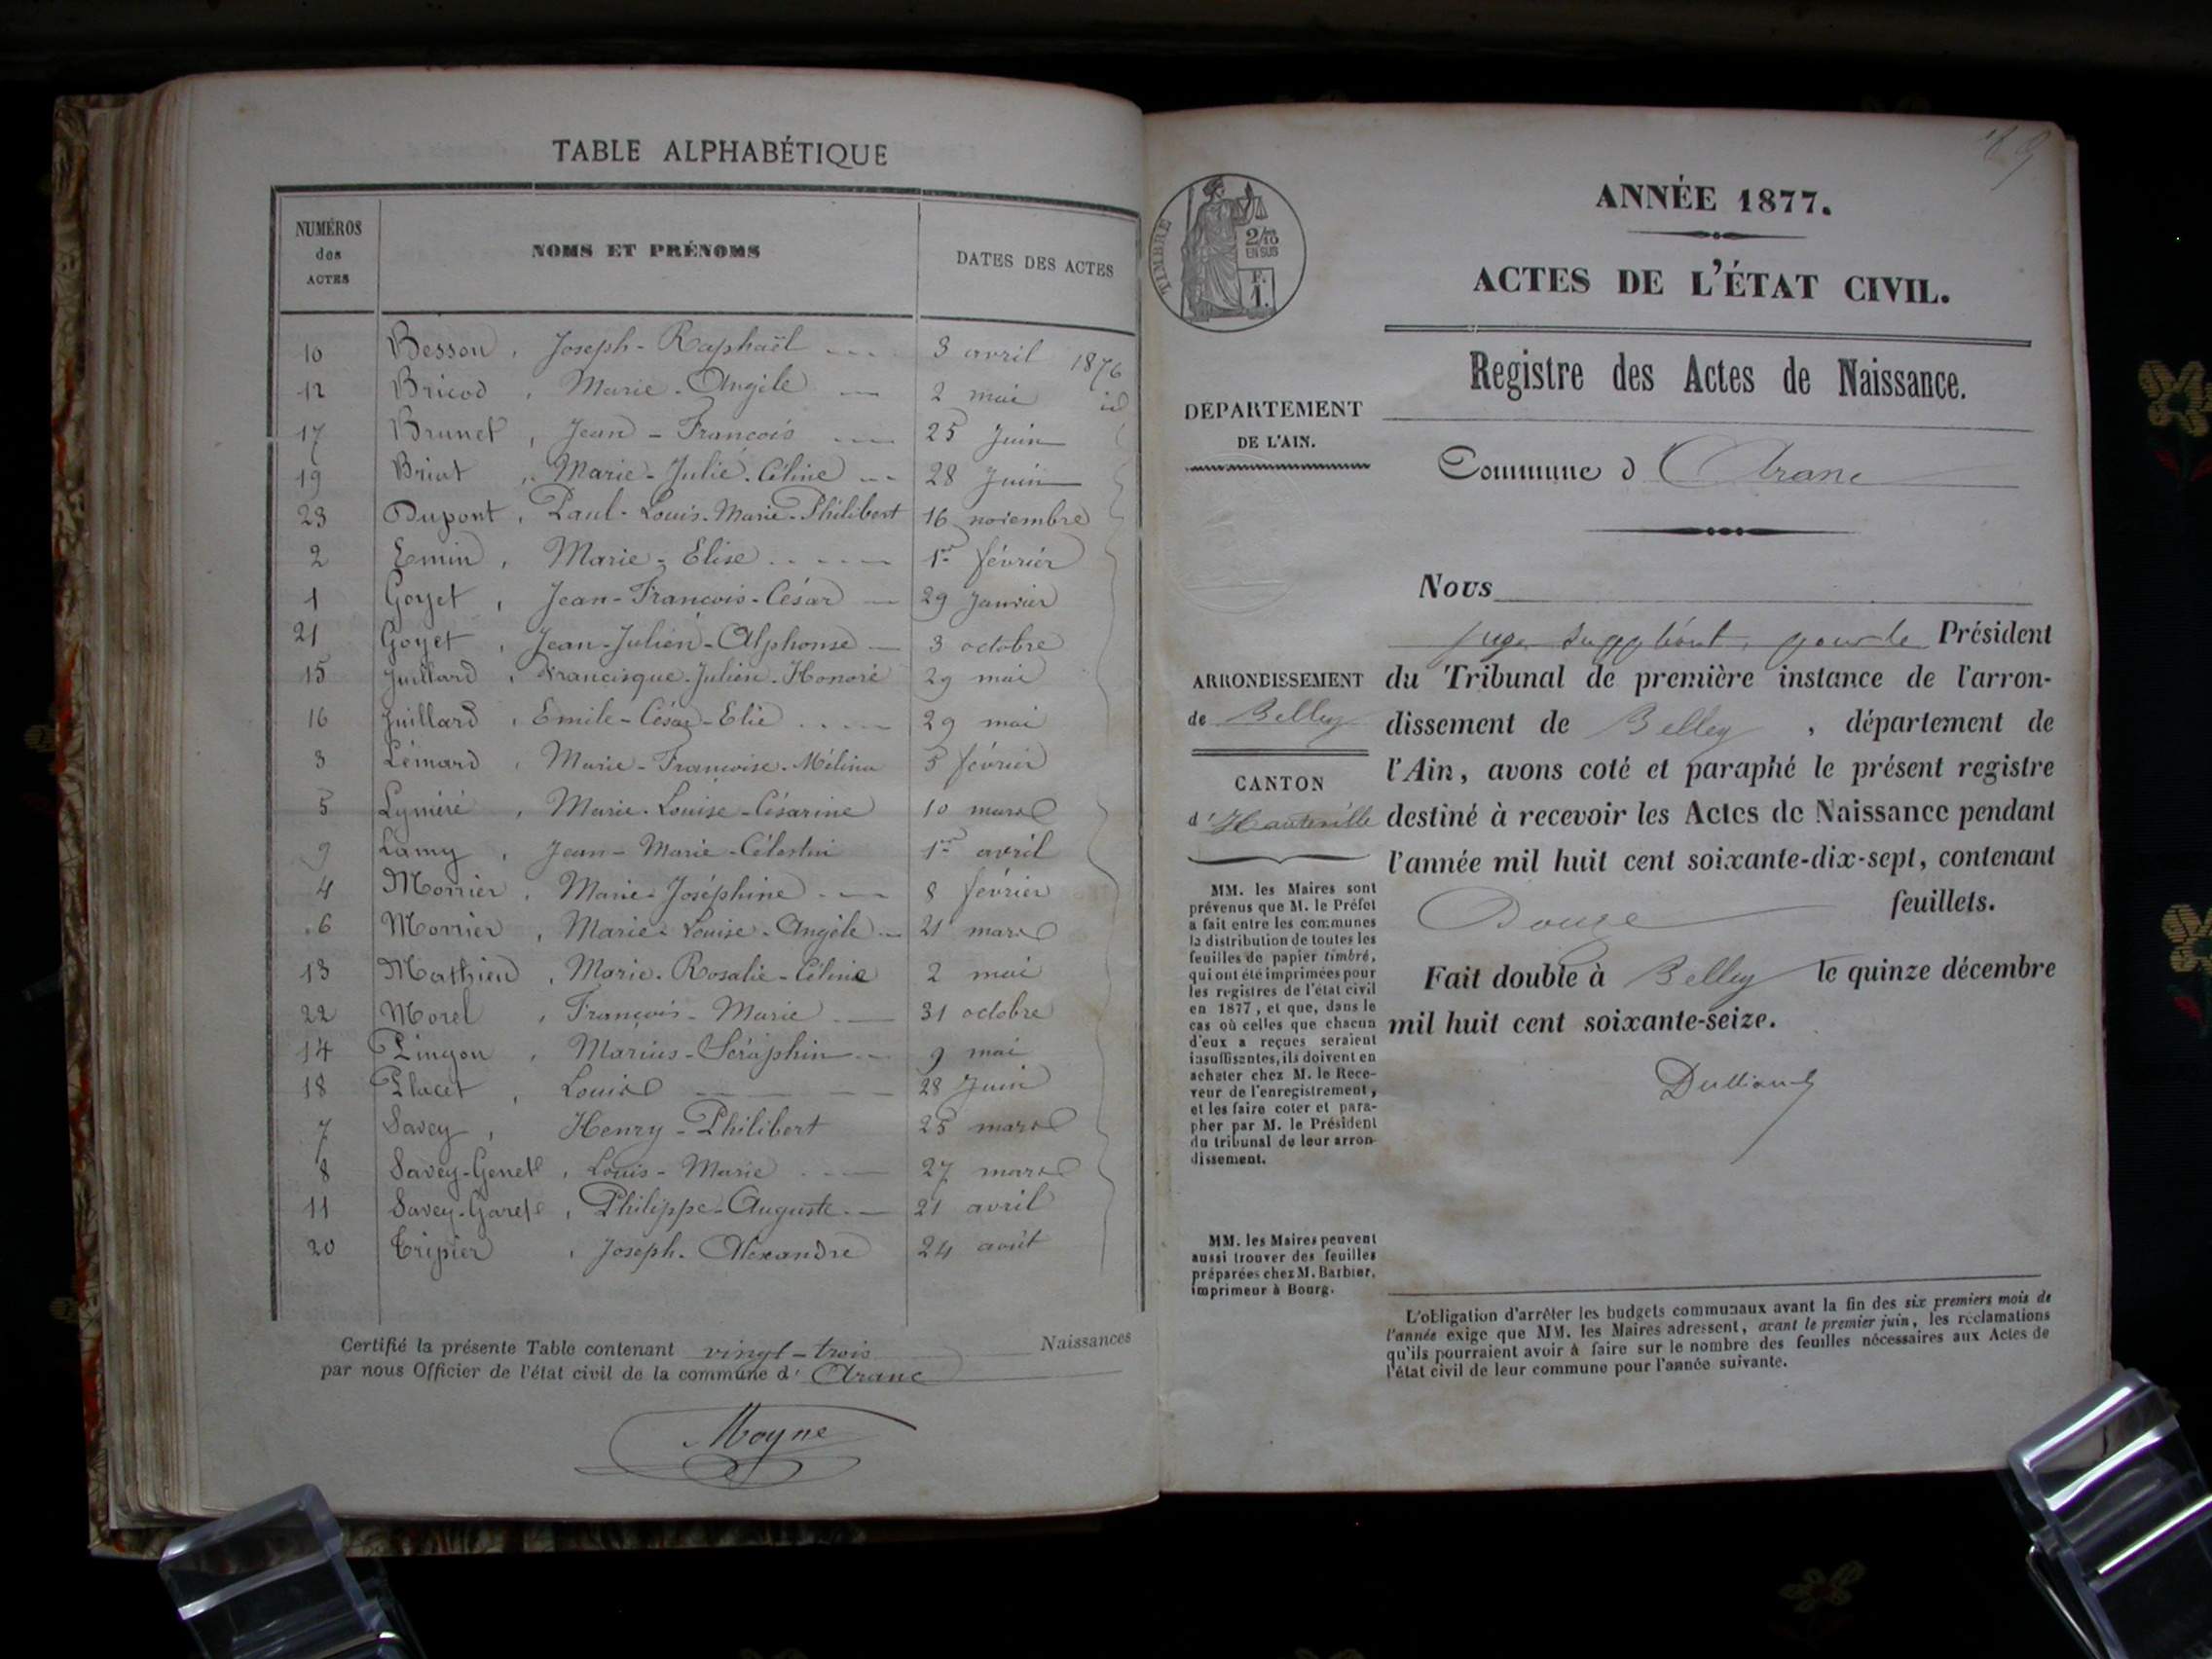 TABLE ALPHABÉTIQUE
NUMÉROS des ACTES NOMS ET PRÉNOMS DATES DES ACTES
10 Besson, Joseph-Raphaël 3 avril 1876
12 Bricod, Marie-Angèle 2 mai id
17 Brunet, Jean-François 25 Juin
19 Briat, Marie-Julie-Céline 28 Juin
23 Dupont, Paul-Louis-Marie-Philibert 16 novembre
2 Emin, Marie-Elise 1er février
1 Goyet, Jean-François-César 29 Janvier
21 Goyet, Jean-Julien-Alphonse 3 octobre
15 Juillard, Francisque-Julien-Honoré 29 mai
16 Juillard, Emile-César-Elie 29 mai
3 Lémard, Marie-Françoise-Mélina 5 février
5 Lyméré, Marie-Louise-Césarine 10 mars
9 Lamy, Jean-Marie-Célestin 1er avril
4 Morrier, Marie-Joséphine 8 février
6 Morrier, Marie-Louise-Angèle 21 mars
13 Mathieu, Marie-Rosalie-Céline 2 mai
22 Morel, François-Marie 31 octobre
14 Pingon, Marius-Séraphin 9 mai
18 Placet, Louise 28 Juin
7 Savey, Henry-Philibert 25 mars
8 Savey-Genet, Louis-Marie 27 mars
11 Savey-Garet, Philippe-Auguste 21 avril
20 Tripier, Joseph-Alexandre 24 août
Certifié la présente Table contenant vingt-trois Naissances
par nous Officier de l'état civil de la commune d'Aranc
Moyne
TIMBRE
2/10
EN SUS
F.
1.
ANNÉE 1877.
ACTES DE L'ÉTAT CIVIL.
Registre des Actes de Naissance.
DÉPARTEMENT
DE L'AIN.
Commune d'Aranc
Nous
juge suppléant, pour le Président
du Tribunal de première instance de l'arron-
dissement de Belley, département de
l'Ain, avons coté et paraphé le présent registre
destiné à recevoir les Actes de Naissance pendant
l'année mil huit cent soixante-dix-sept, contenant
Douze feuillets.
Fait double à Belley le quinze décembre
mil huit cent soixante-seize.
ARRONDISSEMENT
de Belley
CANTON
d'Hauteville
MM. les Maires sont
prévenus que M. le Préfet
a fait entre les communes
la distribution de toutes les
feuilles de papier timbré,
qui ont été imprimées pour
les registres de l'état civil
en 1877, et que, dans le
cas où celles que chacun
d'eux a reçues seraient
insuffisantes, ils doivent en
acheter chez M. le Rece-
veur de l'enregistrement,
et les faire coter et para-
pher par M. le Président
du tribunal de leur arron-
dissement.
MM. les Maires peuvent
aussi trouver des feuilles
préparées chez M. Barbier,
imprimeur à Bourg.
L'obligation d'arrêter les budgets communaux avant la fin des six premiers mois de
l'année exige que MM. les Maires adressent, avant le premier juin, les réclamations
qu'ils pourraient avoir à faire sur le nombre des feuilles nécessaires aux Actes de
l'état civil de leur commune pour l'année suivante.